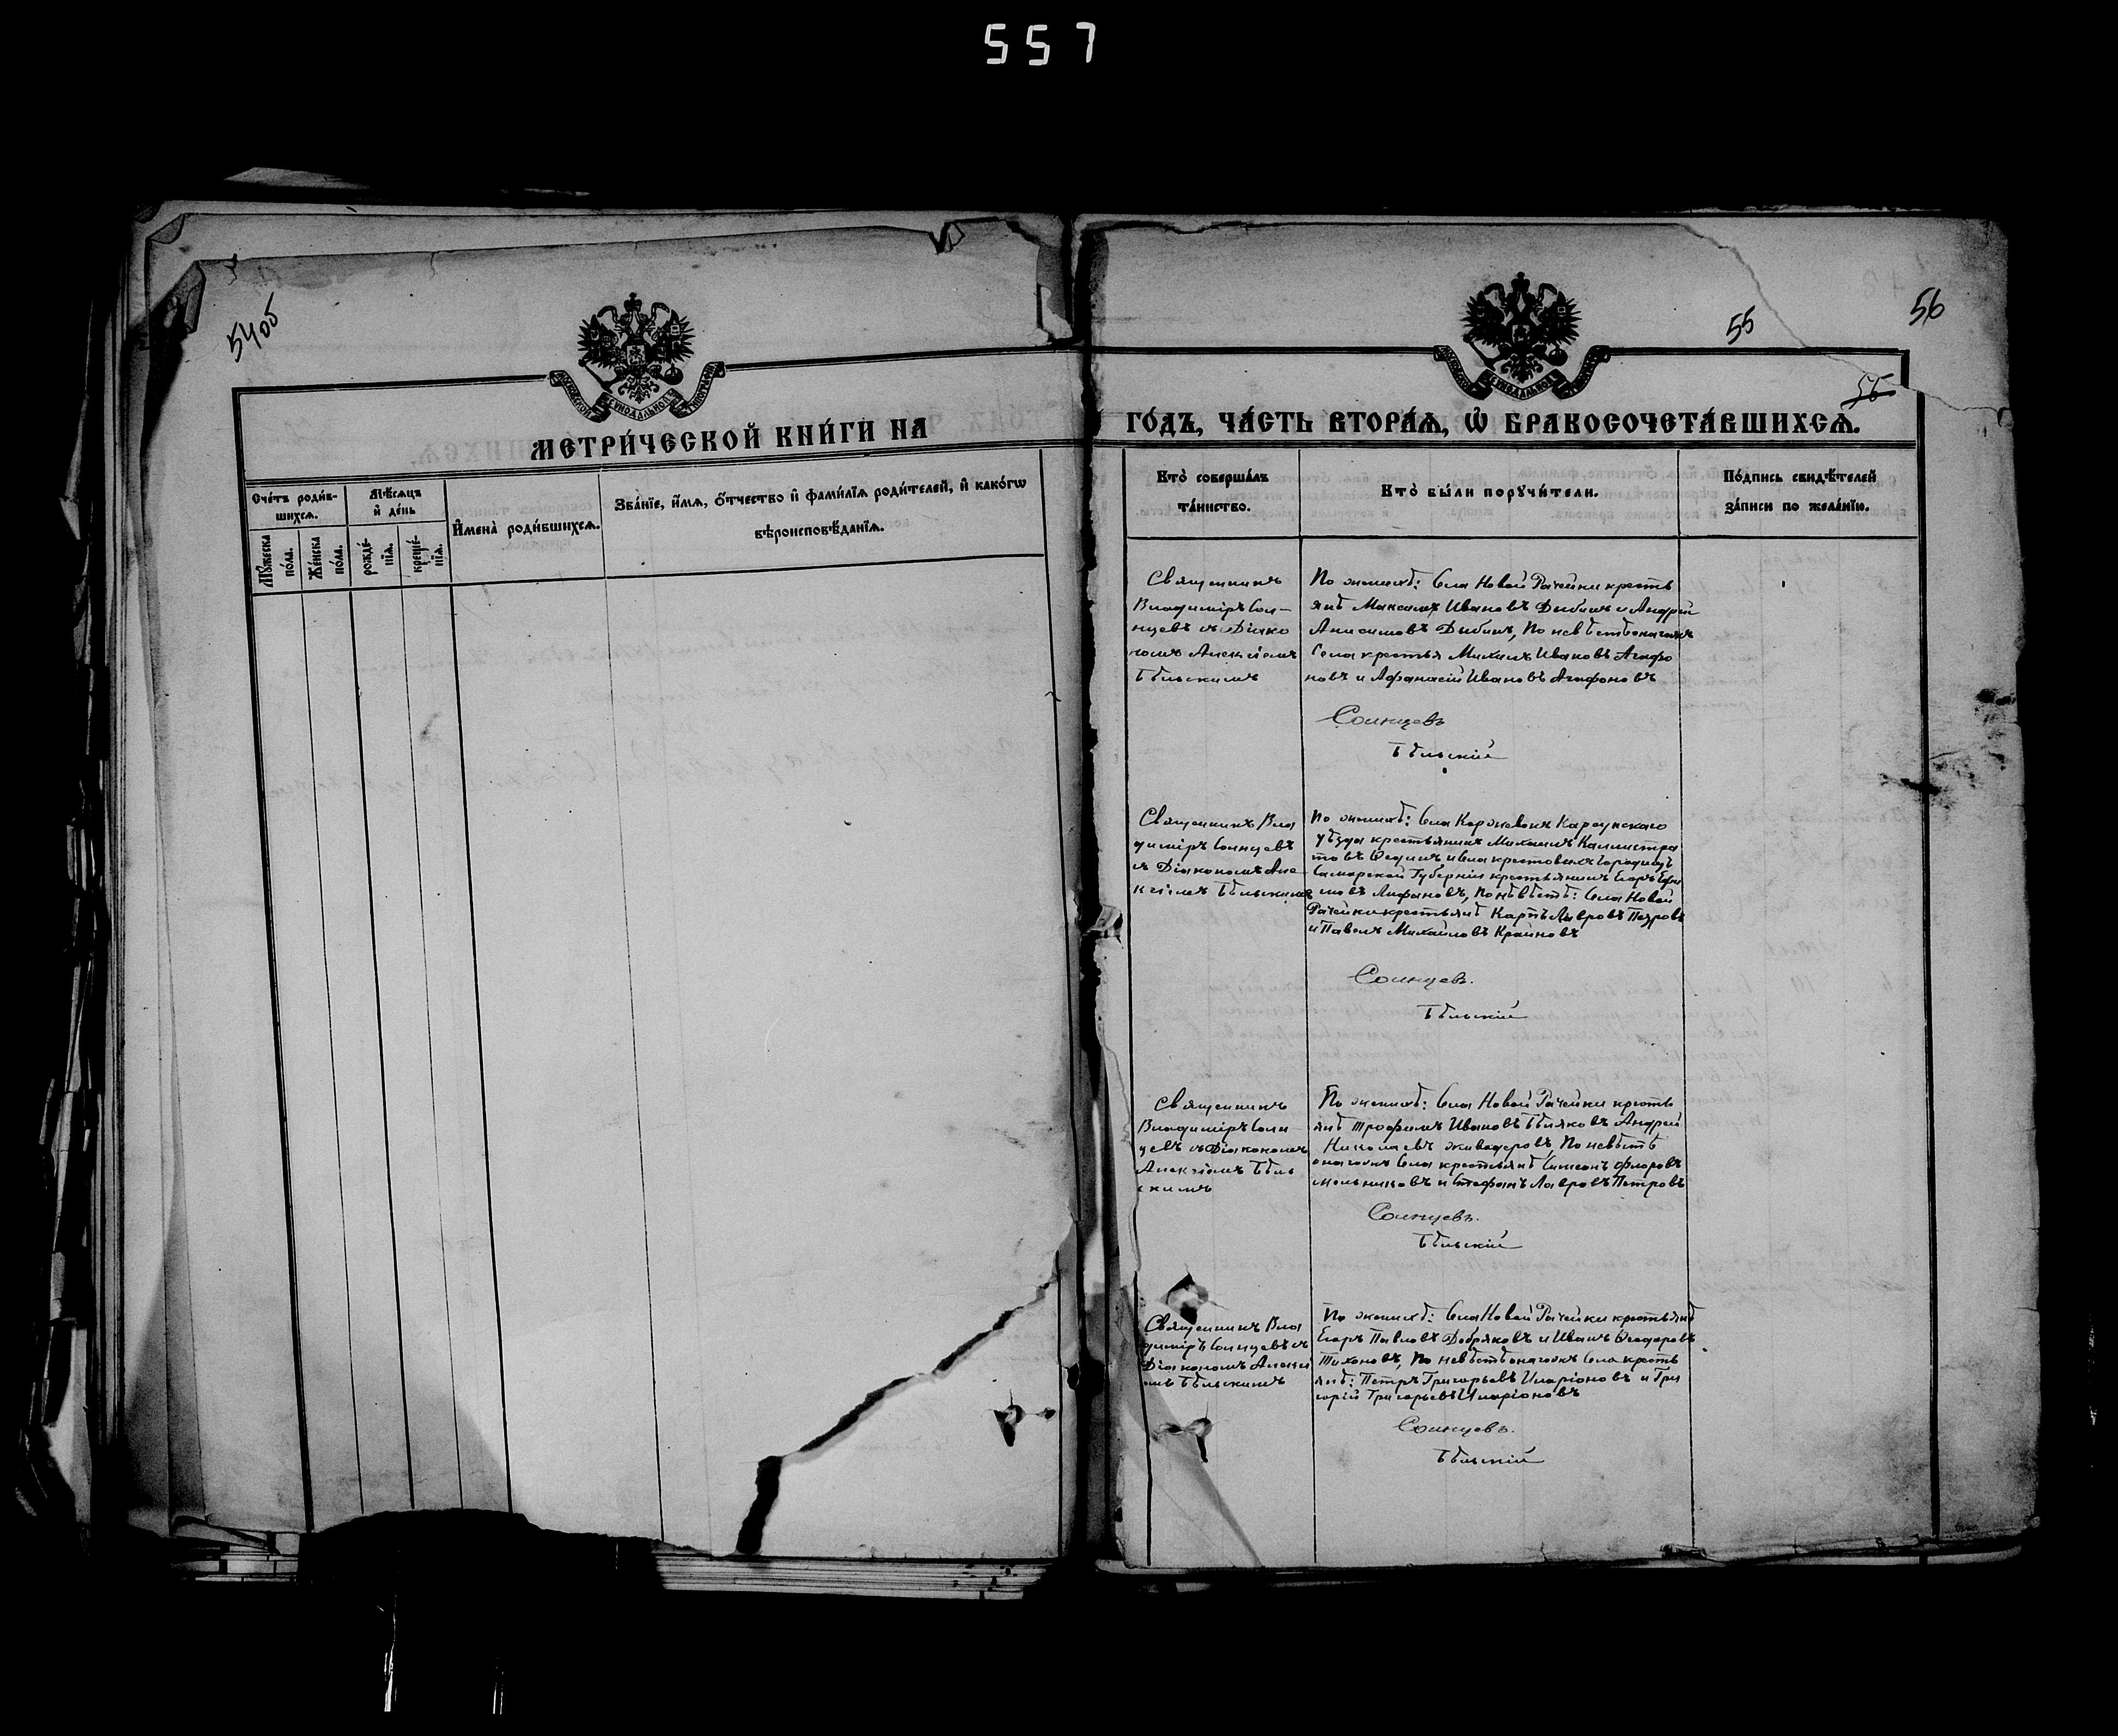 557
54об
МОСКОВСКОЙ СѴНОДАЛЬНОЙ ТИПОГРАФІИ
МЕТРИ́ЧЕСКОЙ КНИ́ГИ НА
Сче́тъ роди́вшихсѧ.
Мѣ́сѧцъ и҆ де́нь
И҆мена̀ роди́вшихсѧ.
Зва́нїе, и҆́мѧ, ѻ҆́тчество и҆ фами́лїѧ роди́телей, и҆ како́гѡ
вѣроисповѣ́данїѧ.
Мꙋ́жеска по́ла.
Же́нска по́ла.
рожде́нїѧ.
креще́нїѧ.
55
56
56
МОСКОВСКОЙ СѴНОДАЛЬНОЙ ТИПОГРАФІИ
ГО́ДЪ, ЧА́СТЬ ВТОРА́Ѧ, Ѡ҆ БРАКОСОЧЕТА́ВШИХСѦ.
Кто̀ соверша́лъ
та́инство.
Кто̀ бы́ли порꙋчи́тели.
По́дпись свидѣ́телей
за́писи по жела́нїю.
Священникъ
Владиміръ Сол-
нцевъ съ Діако
номъ Алексіемъ
Бѣльскимъ
По женихѣ: Села Новой Рачейки кресть
янѣ Максимъ Ивановъ Дыбинъ и Андрей
Анисимовъ Дыбинъ, По невѣстѣ онагожъ
Села крестья Михаилъ Ивановъ Агафо
новъ и Афанасій Ивановъ Агафоновъ
Солнцевъ
Бѣльскій
Священникъ Вла
диміръ Солнцевъ
съ Діакономъ Але-
ксіемъ Бѣльскимъ
По женихѣ: Села Коржевокъ Карсунскаго
уѣзда крестьянинъ Михаилъ Каллистра
товъ Ѳединъ и Села крестовыхъ Городищъ
Самарской Губерніи крестьянинъ Егоръ Ефи
мовъ Анфановъ, По невѣстѣ: Села Новой
Рачейки крестьянѣ Карпъ Лавровъ Петровъ
и Павелъ Михайловъ Крайновъ
Солнцевъ.
Бѣльскій
Священникъ
Владиміръ Солн
цевъ съ Діакономъ
Алексіемъ Бѣль
скимъ
По женихѣ: Села Новой Рачейки кресть
янѣ Трофимъ Ивановъ Бѣляковъ Андрей
Николаевъ Живодеровъ, По невѣстѣ
онагожъ Села крестьянѣ Симеонъ Флоровъ
Мельниковъ и Стефанъ Лавровъ Петровъ
Солнцевъ.
Бѣльскій
Священникъ Вла
диміръ Солнцевъ съ
Діакономъ Алексі
емъ Бѣльскимъ
По женихѣ: Села Новой Рачейки крестьянѣ
Егоръ Павловъ Добряковъ и Иванъ Ѳеодоровъ
Тихоновъ, По невѣстѣ онагожъ Села кресть
янѣ: Петръ Григорьевъ Иларіоновъ и Гри
горій Григорьевъ Иларіоновъ
Солнцевъ.
Бѣльскій